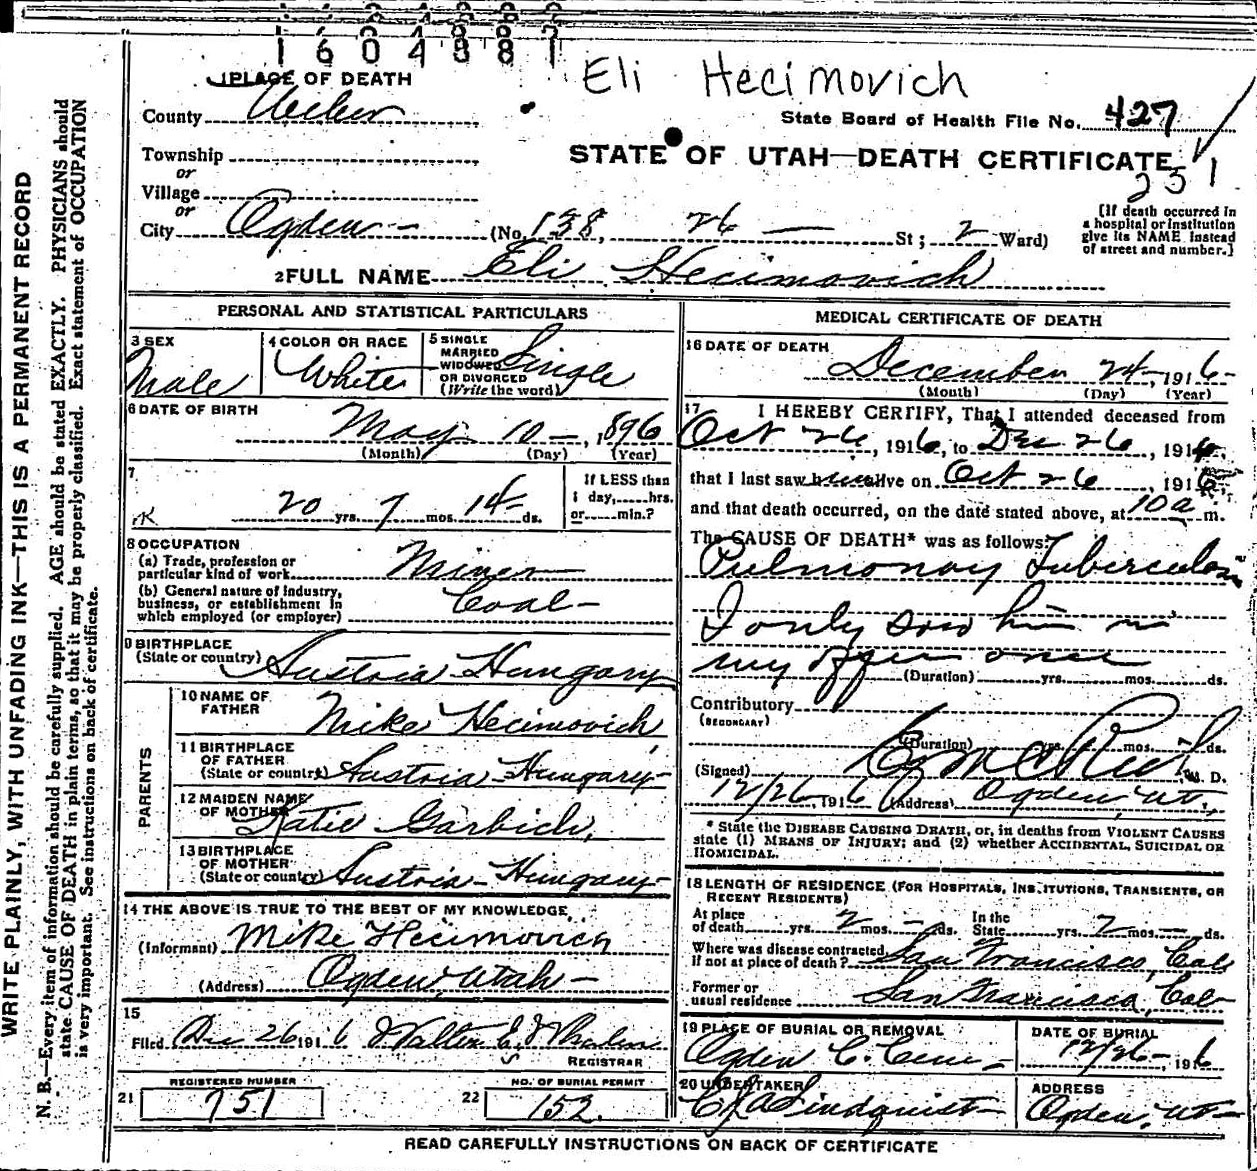 1604887
Eli Hecimovich
1 PLACE OF DEATH
County Weber
State Board of Health File No. 427
Township
STATE OF UTAH—DEATH CERTIFICATE
251
or
Village
or
City Ogden (No. 138, 26 St; 2 Ward)
[If death occurred in
a hospital or institution
give its NAME instead
of street and number.]
2 FULL NAME Eli Hecimovich
PERSONAL AND STATISTICAL PARTICULARS
3 SEX
Male
4 COLOR OR RACE
White
5 SINGLE
MARRIED
WIDOWED
OR DIVORCED
(Write the word)
Single
6 DATE OF BIRTH
May 10 —, 1896
(Month) (Day) (Year)
7
20 yrs. 7 mos. 14 ds.
If LESS than
1 day, hrs.
or min.?
8 OCCUPATION
(a) Trade, profession or
particular kind of work Miner
(b) General nature of Industry,
business, or establishment in
which employed (or employer) Coal —
9 BIRTHPLACE
(State or country) Austria Hungary
PARENTS
10 NAME OF
FATHER Mike Hecimovich
11 BIRTHPLACE
OF FATHER
(State or country) Austria-Hungary
12 MAIDEN NAME
OF MOTHER Katie Garbich
13 BIRTHPLACE
OF MOTHER
(State or country) Austria-Hungary
14 THE ABOVE IS TRUE TO THE BEST OF MY KNOWLEDGE
(Informant) Mike Hecimovich
(Address) Ogden, Utah —
15
Filed Dec 26 1916 Walter E. Whalen
REGISTRAR
REGISTERED NUMBER
21 751
NO. OF BURIAL PERMIT
22 152
MEDICAL CERTIFICATE OF DEATH
16 DATE OF DEATH
December 24, 1916
(Month) (Day) (Year)
17 I HEREBY CERTIFY, That I attended deceased from
Oct 26, 1916, to Dec 26, 191
that I last saw him alive on Oct 26, 1916
and that death occurred, on the date stated above, at 10 a m.
The CAUSE OF DEATH* was as follows:
Pulmonay Tuberculosis
I only saw him in
my office once
(Duration) yrs. mos. ds.
Contributory
(SECONDARY)
(Duration) yrs. mos. ds.
(Signed) M. D.
12/26 1916 (Address) Ogden Ut.
* State the DISEASE CAUSING DEATH, or, in deaths from VIOLENT CAUSES
state (1) MEANS OF INJURY; and (2) whether ACCIDENTAL, SUICIDAL OR
HOMICIDAL.
18 LENGTH OF RESIDENCE (FOR HOSPITALS, INSTITUTIONS, TRANSIENTS, OR
RECENT RESIDENTS)
At place
of death yrs. 2 mos. — ds.
In the
State yrs. 2 mos. — ds.
Where was disease contracted
if not at place of death? San Francisco, Cal
Former or
usual residence San Francisco, Cal
19 PLACE OF BURIAL OR REMOVAL
Ogden C. Cem —
DATE OF BURIAL
12/26 —, 1916
20 UNDERTAKER
Lindquist
ADDRESS
Ogden, Ut —
READ CAREFULLY INSTRUCTIONS ON BACK OF CERTIFICATE
WRITE PLAINLY, WITH UNFADING INK—THIS IS A PERMANENT RECORD
N. B.—Every item of information should be carefully supplied. AGE should be stated EXACTLY. PHYSICIANS should
state CAUSE OF DEATH in plain terms, so that it may be properly classified. Exact statement of OCCUPATION
is very important. See instructions on back of certificate.